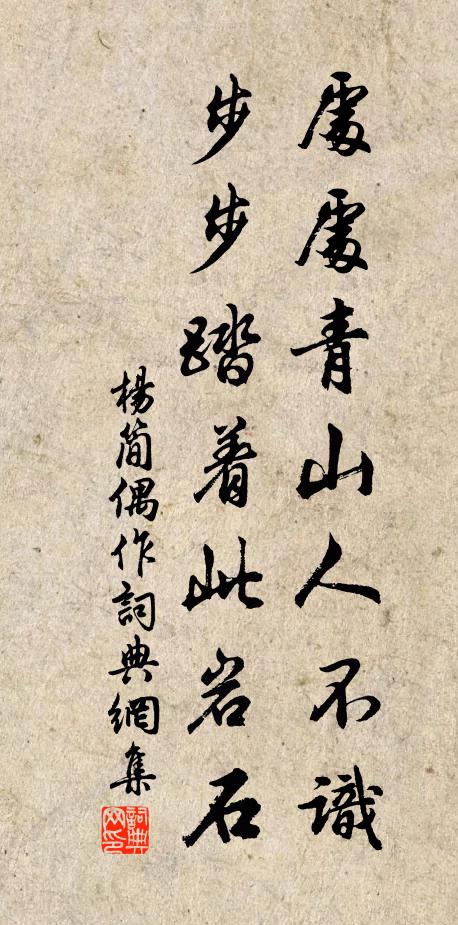 處處青山人不識
步步踏着此岩石
楊簡偶作詞典網集
詞典网印